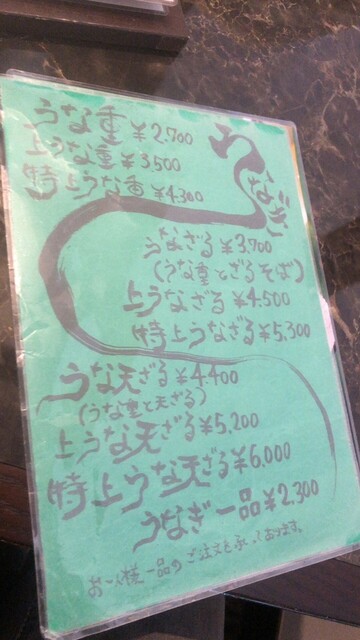 うなぎ
うな重 ¥2,700
上うな重 ¥3,500
特上うな重 ¥4,300
うなざる ¥3,700
(うな重とざるそば)
上うなざる ¥4,500
特上うなざる ¥5,300
うな天ざる ¥4,400
(うな重と天ざる)
上うな天ざる ¥5,200
特上うな天ざる ¥6,000
うなぎ一品 ¥2,300
お一人様一品のご注文を承っております。